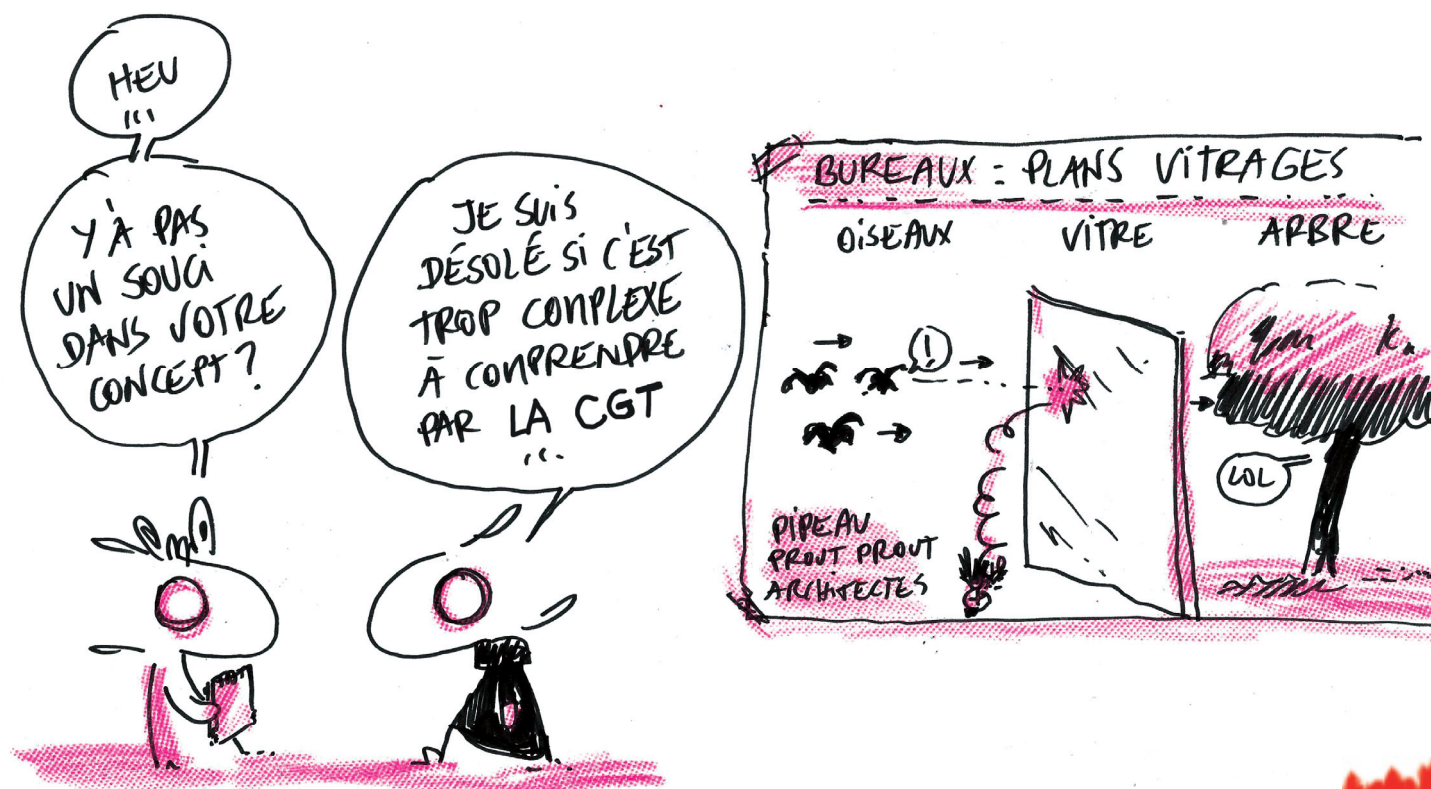 HEU
...
Y'À PAS
UN SOUCI
DANS VOTRE
CONCEPT?
JE SUIS
DÉSOLÉ SI C'EST
TROP COMPLEXE
À COMPRENDRE
PAR LA CGT
...
BUREAUX = PLANS VITRAGES
OISEAUX VITRE ARBRE
!
LOL
PIPEAU
PROUT PROUT
ARCHITECTES